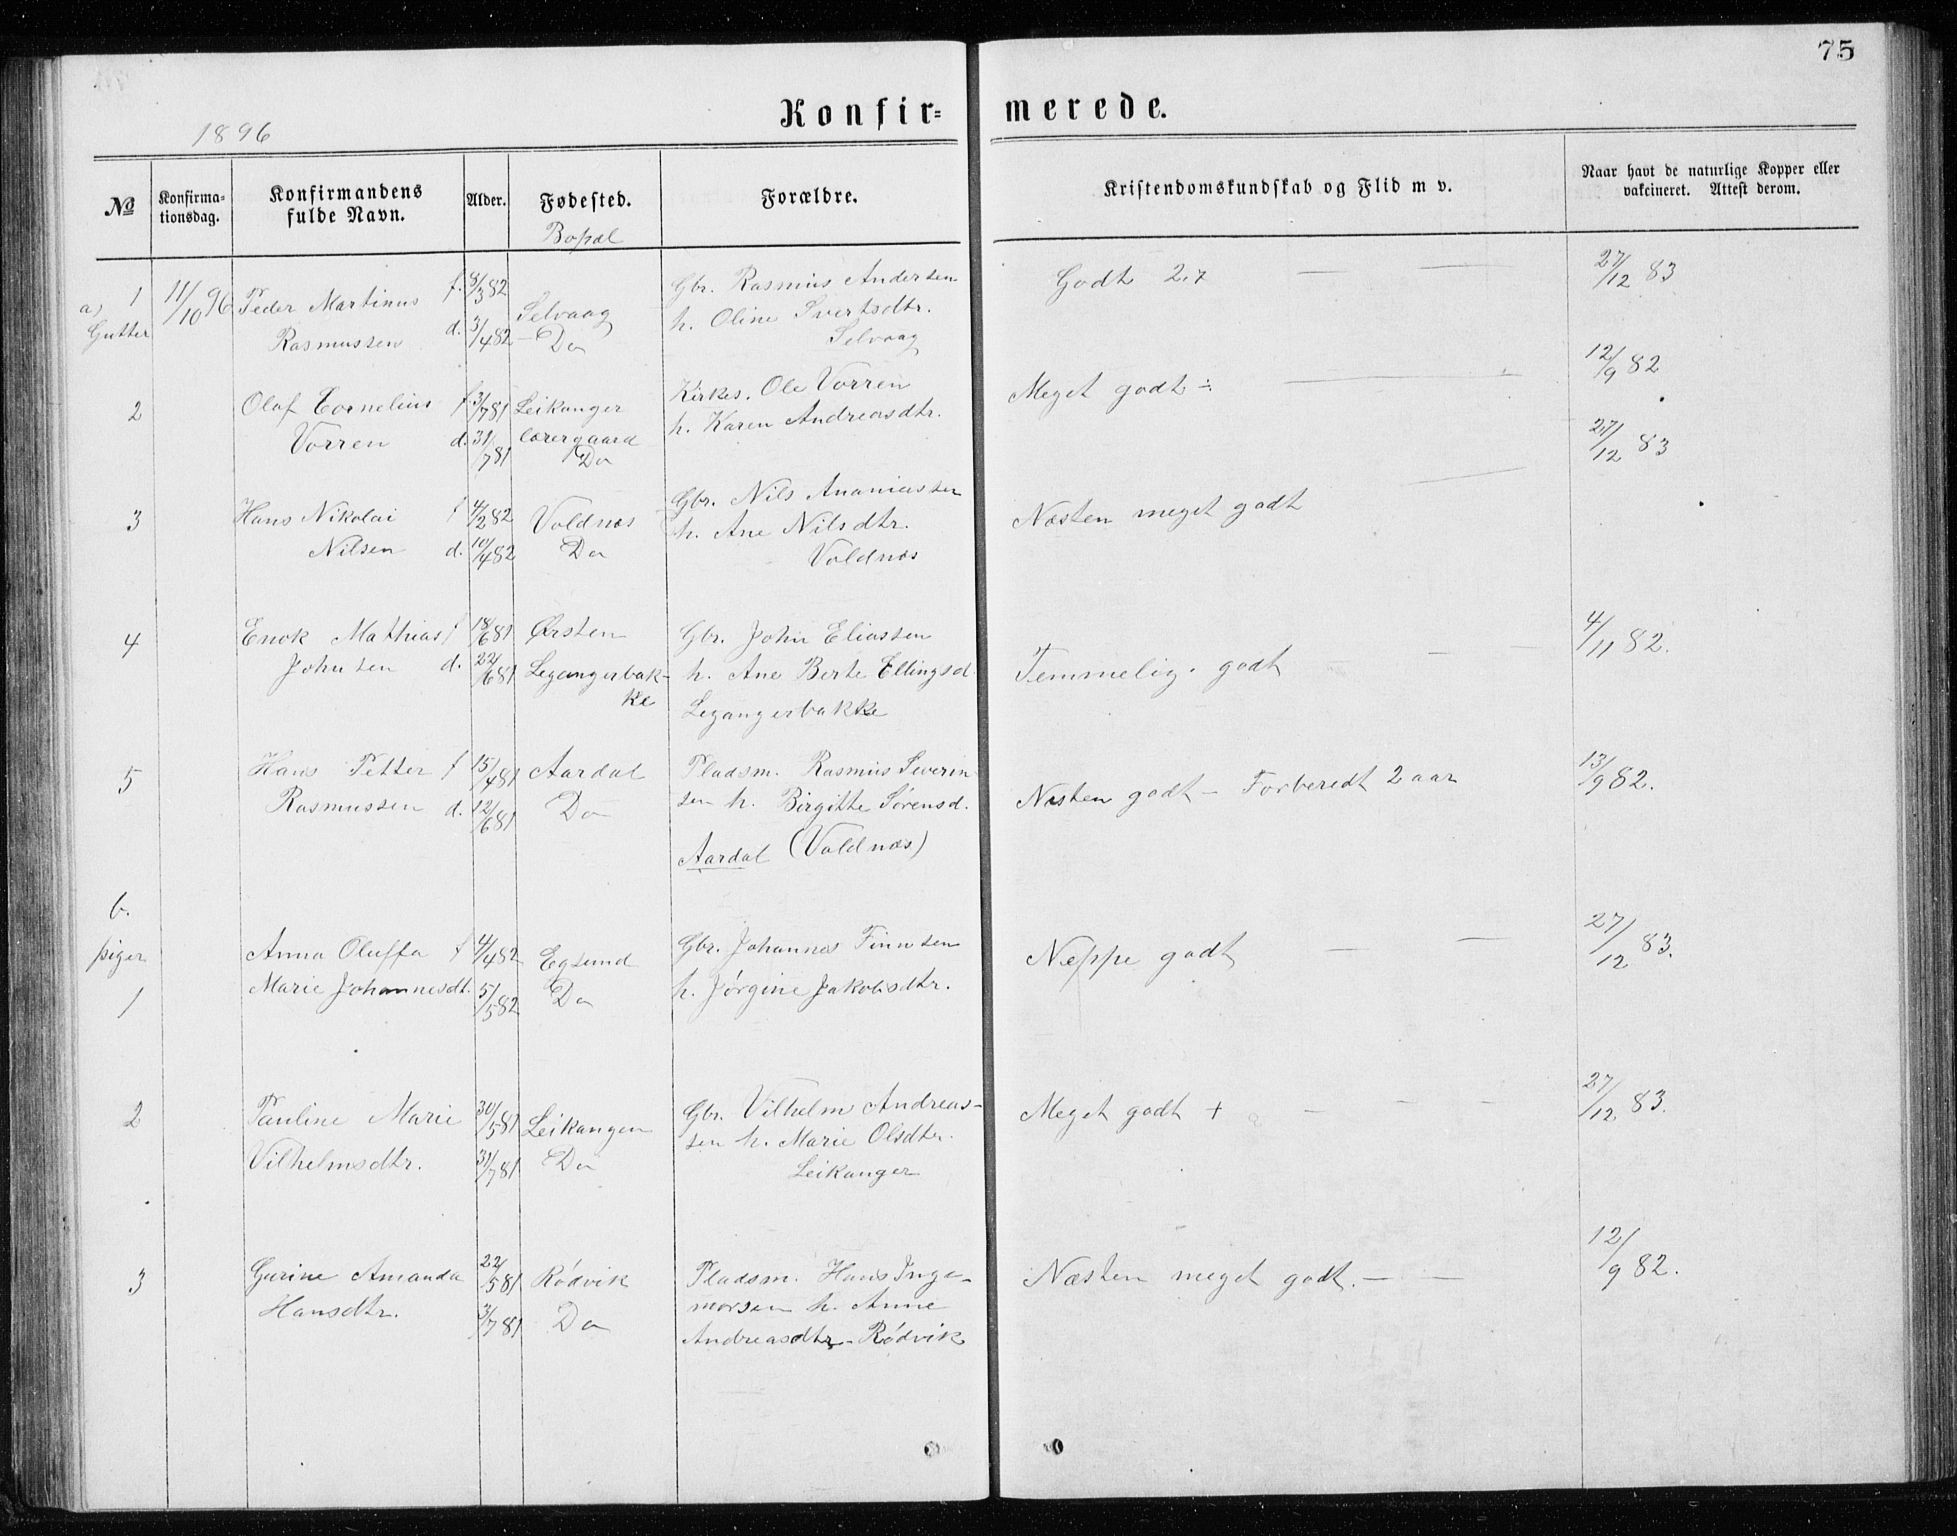 75
Konfir= merede.
1896
No Konfirma-tionsdag. Konfirmandens fulde Navn. Alder. Fødested. Forældre. Kristendomskundskab og Flid m v. Naar havt de naturlige Kopper eller vakcineret. Attest derom.
Bopæl
a) 1 11/10 96 Peder Martinus f. 8/3 82 Selvaag Gbr. Rasmus Andersen Godt 2.7 — — 27/12 83
Gutter Rasmussen d. 3/4 82 Do h. Oline Ivertsdtr.
Selvaag
2 Olaf Cornelius f 3/7 81 Leikanger Kirkes. Ole Vorren Meget godt ÷ 12/9 82
Vorren d. 31/7 81 lærergaard h. Karen Andreasdtr. 27/12 83
Do
3 Hans Nikolai f 4/2 82 Voldnæs Gbr. Nils Ananiassen Næsten meget godt
Nilsen d. 10/4 82 Do h. Ane Nilsdtr.
Voldnæs
4 Enok Mathias f 18/6 81 Ørsten Gbr. John Eliassen Temmelig godt — — 4/11 82.
Johnsen d. 22/6 81 Legangerbak- h. Ane Berte Ellingsd
ke Legangerbakke
5 Hans Petter f 15/4 81 Aardal Pladsm. Rasmus Severin- Næsten godt — Forberedt 2 aar 13/9 82.
Rasmussen d. 12/6 81 Do sen h. Birgitte Sørensd.
Aardal (Voldnæs)
b.
piger Anna Oluffa f 4/4 82 Egsund Gbr. Johannes Finnsen Neppe godt — — 27/12 83.
1 Marie Johannesdt. 5/5 82 Do h. Jørgine Jakobsdtr.
2 Pauline Marie 30/5 81 Leikanger Gbr. Vilhelm Andreas- Meget godt + — — — 27/12 83.
Vilhelmsdtr. 31/7 81 Do sen h. Marie Olsdtr.
Leikanger
3 Gurine Amanda 22/5 81 Rødvik Pladsm. Hans Inge- Næsten meget godt. — — 12/9 82.
Hansdtr. 3/7 81 Do morsen h. Anne
Andreasdtr. Rødvik